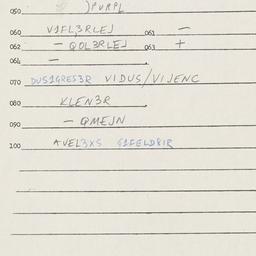 050 )PURPL
060 V1FL3RLEJ 061 —
062 — QOL3RLEJ 063 +
064 —
070 DUS1GRES3R VIDUS/VIJENC
080 KLEN3R
090 — QMEJN
100 AVEL3XS G1FELD8IR